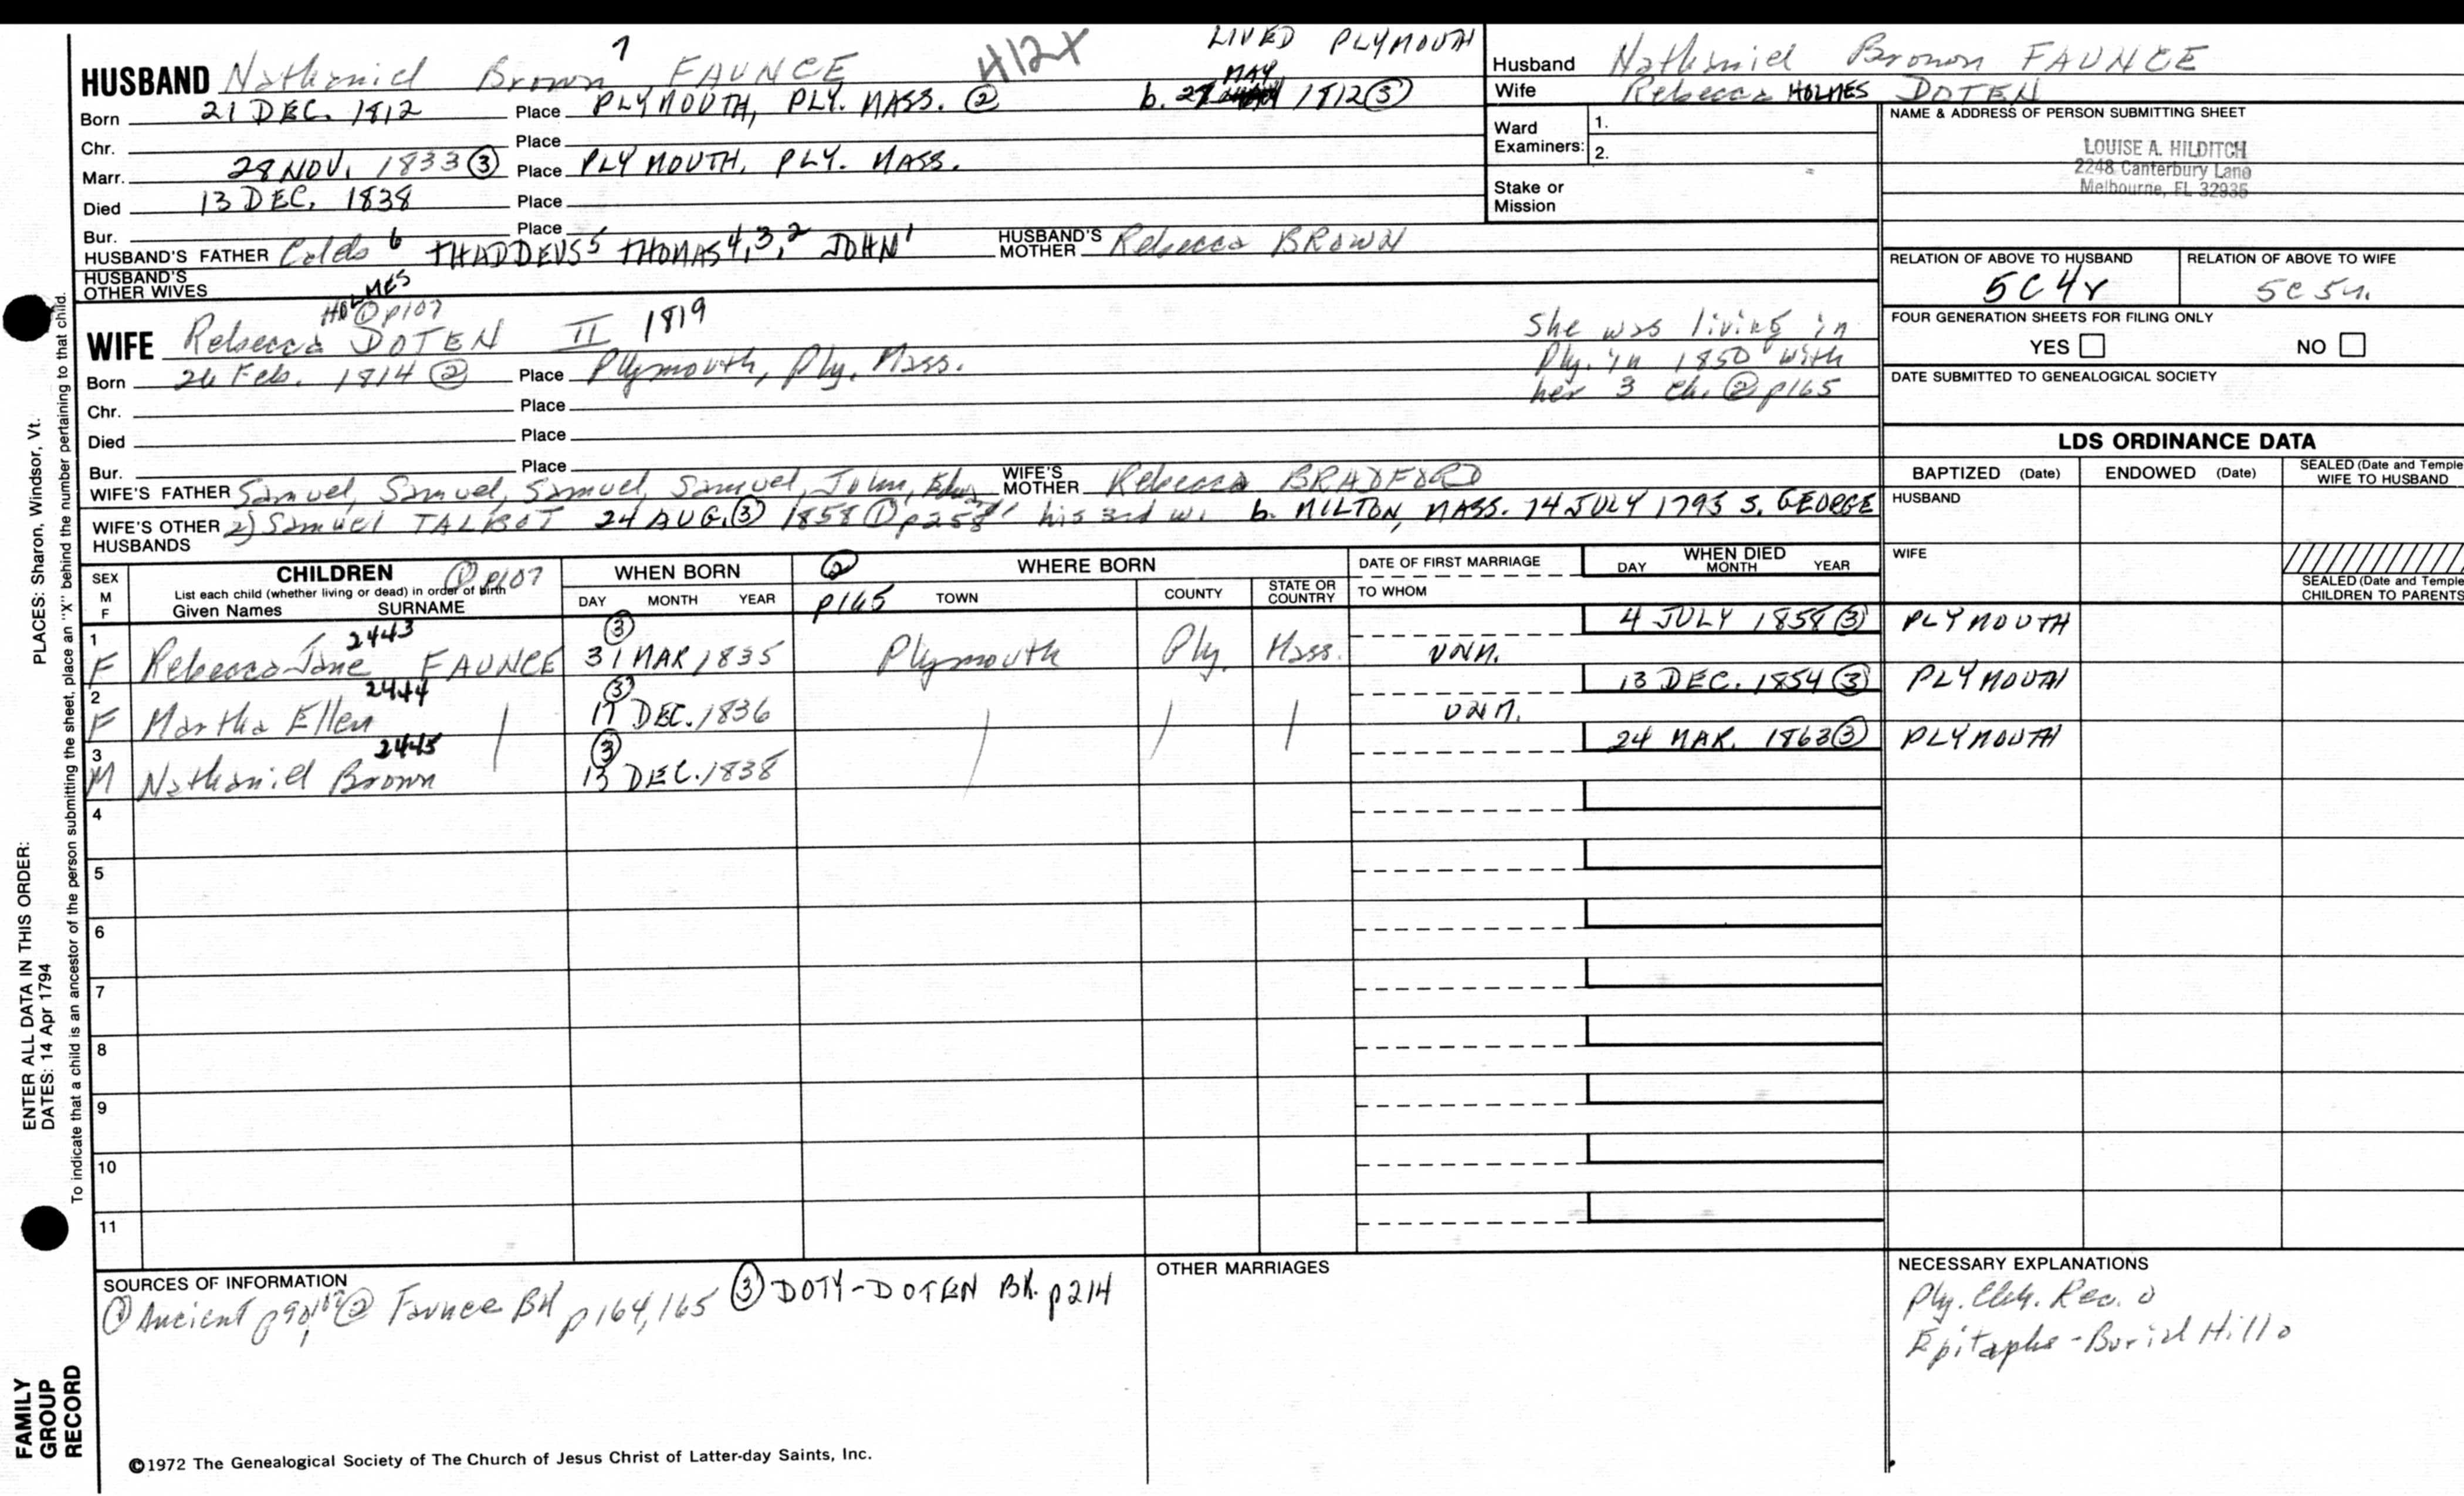 7 H12X LIVED PLYMOUTH
HUSBAND Nathaniel Brown FAUNCE
MAY
Born 21 DEC. 1812 Place PLYMOUTH, PLY. MASS. ② b. 27 1812 ③
Chr. Place
Marr. 28 NOV. 1833 ③ Place PLYMOUTH, PLY. MASS.
Died 13 DEC. 1838 Place
Bur. Place
HUSBAND'S FATHER Caleb 6 THADDEUS 5 THOMAS 4,3,2 JOHN 1 HUSBAND'S MOTHER Rebecca BROWN
HUSBAND'S OTHER WIVES
HOLMES
① p107
WIFE Rebecca DOTEN II 1819
Born 26 Feb. 1814 ② Place Plymouth, Ply. Mass.
She was living in
Ply. in 1850 with
her 3 ch. ② p165
Chr. Place
Died Place
Bur. Place
WIFE'S FATHER Samuel, Samuel, Samuel, Samuel, John, Edw. WIFE'S MOTHER Rebecca BRADFORD
WIFE'S OTHER HUSBANDS 2) Samuel TALBOT 24 AUG. ③ 1858 ① p258 his 3rd w. b. MILTON, MASS. 14 JULY 1793 S. GEORGE
Husband Nathaniel Brown FAUNCE
Wife Rebecca HOLMES DOTEN
Ward Examiners: 1.
2.
Stake or Mission
NAME & ADDRESS OF PERSON SUBMITTING SHEET
LOUISE A. HILDITCH
2248 Canterbury Lane
Melbourne, FL 32935
RELATION OF ABOVE TO HUSBAND RELATION OF ABOVE TO WIFE
5C4r 5c5r.
FOUR GENERATION SHEETS FOR FILING ONLY
YES NO
DATE SUBMITTED TO GENEALOGICAL SOCIETY
LDS ORDINANCE DATA
BAPTIZED (Date) ENDOWED (Date) SEALED (Date and Temple) WIFE TO HUSBAND
HUSBAND
WIFE
SEALED (Date and Temple) CHILDREN TO PARENTS
SEX M F CHILDREN ① p107
List each child (whether living or dead) in order of birth
Given Names SURNAME
WHEN BORN DAY MONTH YEAR
② p165 WHERE BORN TOWN COUNTY STATE OR COUNTRY
DATE OF FIRST MARRIAGE TO WHOM
WHEN DIED DAY MONTH YEAR
1 2443 ③ 4 JULY 1858 ③ PLYMOUTH
F Rebecca Jane FAUNCE 31 MAR 1835 Plymouth Ply. Mass. UNM.
2 2444 ③ 13 DEC. 1854 ③ PLYMOUTH
F Martha Ellen 17 DEC. 1836 UNM.
3 2445 ③ 24 MAR. 1863 ③ PLYMOUTH
M Nathaniel Brown 13 DEC. 1838
4
5
6
7
8
9
10
11
SOURCES OF INFORMATION
① Ancient p90, 107 ② Faunce BK p164, 165 ③ DOTY-DOTEN BK. p214
OTHER MARRIAGES
NECESSARY EXPLANATIONS
Ply. Chh. Rec.
Epitaphs - Burial Hill
©1972 The Genealogical Society of The Church of Jesus Christ of Latter-day Saints, Inc.
FAMILY
GROUP
RECORD
ENTER ALL DATA IN THIS ORDER:
DATES: 14 Apr 1794
PLACES: Sharon, Windsor, Vt.
To indicate that a child is an ancestor of the person submitting the sheet, place an "X" behind the number pertaining to that child.